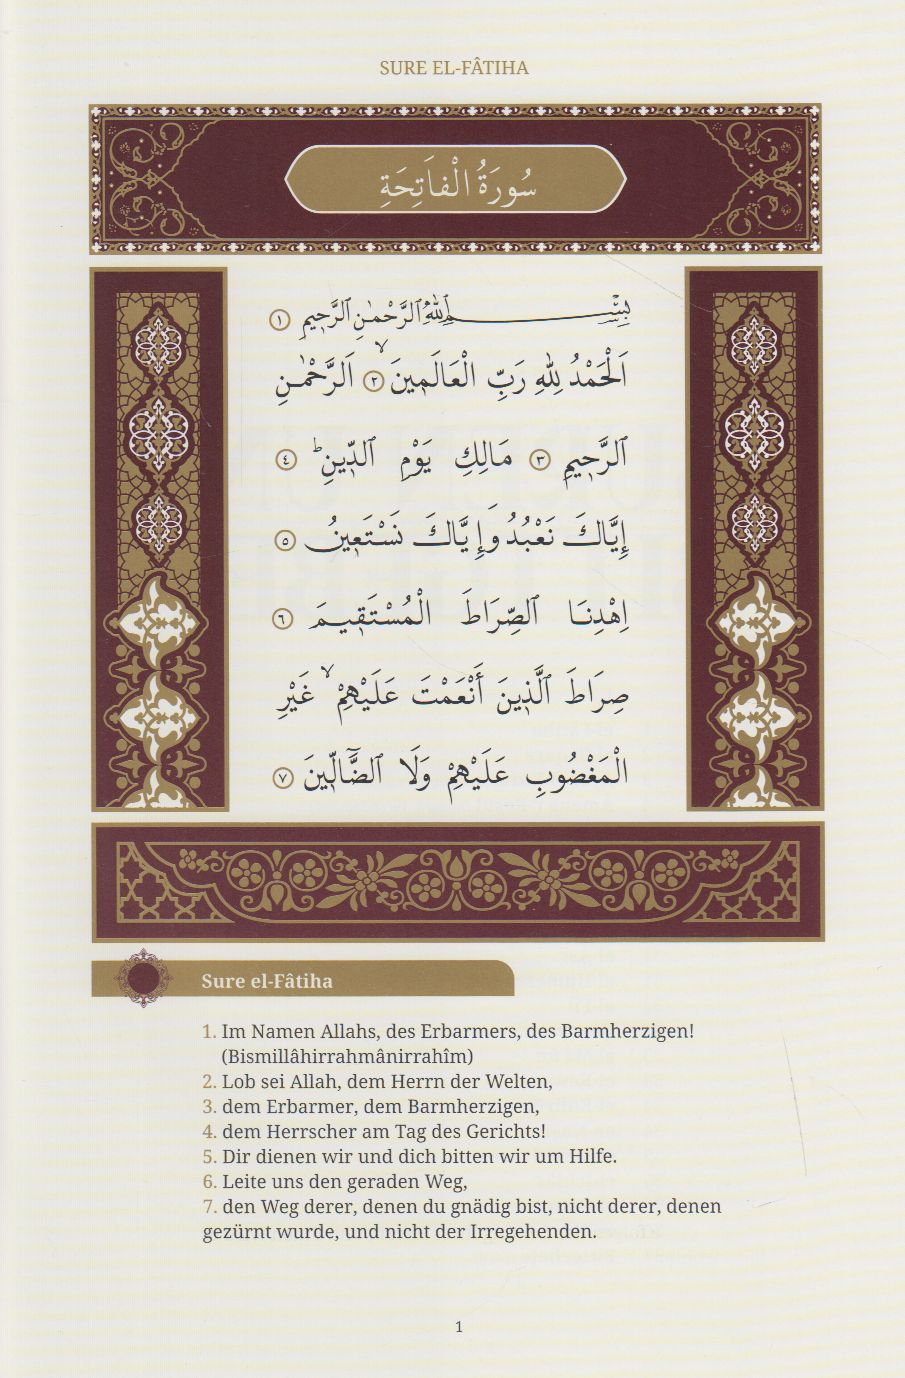 SURE EL-FÂTIHA
سُورَةُ الْفَاتِحَةِ
بِسْمِ اللّٰهِ الرَّحْمٰنِ الرَّحٖيمِ ١
اَلْحَمْدُ لِلّٰهِ رَبِّ الْعَالَمٖينَۙ ٢ اَلرَّحْمٰنِ
الرَّحٖيمِ ٣ مَالِكِ يَوْمِ الدّٖينِؕ ٤
إِيَّاكَ نَعْبُدُ وَإِيَّاكَ نَسْتَعٖينُ ٥
اِهْدِنَا الصِّرَاطَ الْمُسْتَقٖيمَ ٦
صِرَاطَ الَّذٖينَ أَنْعَمْتَ عَلَيْهِمْۙ غَيْرِ
الْمَغْضُوبِ عَلَيْهِمْ وَلَا الضَّٓالّٖينَ ٧
Sure el-Fâtiha
1. Im Namen Allahs, des Erbarmers, des Barmherzigen!
(Bismillâhirrahmânirrahîm)
2. Lob sei Allah, dem Herrn der Welten,
3. dem Erbarmer, dem Barmherzigen,
4. dem Herrscher am Tag des Gerichts!
5. Dir dienen wir und dich bitten wir um Hilfe.
6. Leite uns den geraden Weg,
7. den Weg derer, denen du gnädig bist, nicht derer, denen
gezürnt wurde, und nicht der Irregehenden.
1